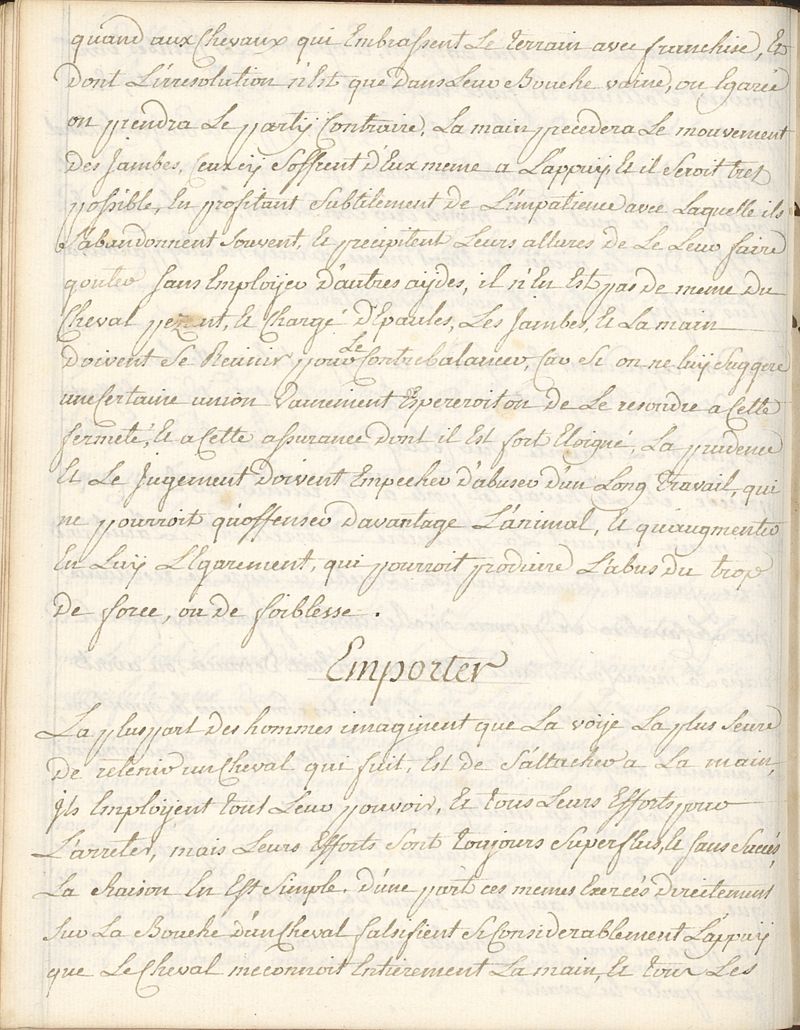 quand aux Chevaux qui Embrassent Le terrain avec franchise, Et
dont L'irresolution n'Est que dans Leur Bouche vaine, ou Egarée
on prendra Le party Contraire, La main precedera Le mouvement
des Jambes, Ceuxcy s'offrent d'Eux meme a L'appuy Et il Seroit tres
possible, En profitant Subtilement de L'impatience avec Laquelle ils
s'abandonnent Souvent, Et precipitent Leurs allures de Le Leur faire
gouter sans Employer d'autres aydes, il n'En Est pas de meme du
Cheval pezant, Et Chargé d'Epaules, Les Jambes, Et La main
doivent Se Reünir pour Le Contrebalancer, Car Si on ne luy Suggere
une Certaine union vainement Espereroit on de Le resoudre a Cette
fermeté, Et a Cette assurance dont il Est fort Eloigné, La prudence
Et Le Jugement doivent Empecher d'abuser d'un Long travail, qui
ne pourroit qu'offenser davantage L'animal, Et qu'augmenter
En Luy L'Egarement, qui pourroit produire L'abus du trop
de force, ou de foiblesse.
Emporter
La pluspart des hommes imaginent que La voye La plus Seure
de retenir un Cheval qui fuit, Est de S'attacher a La main,
Ils Employent tout Leur pouvoir, Et tous Leurs Efforts pour
L'arreter, mais Leurs Efforts Sont toujours Superflus, Et Sans Succés
La Raison En Est Simple. d'une part ces memes Exercés directement
Sur La Bouche d'un Cheval falsifient Si Considerablement L'appuy
que Le Cheval meconnoit Entierement La main, Et tous Les